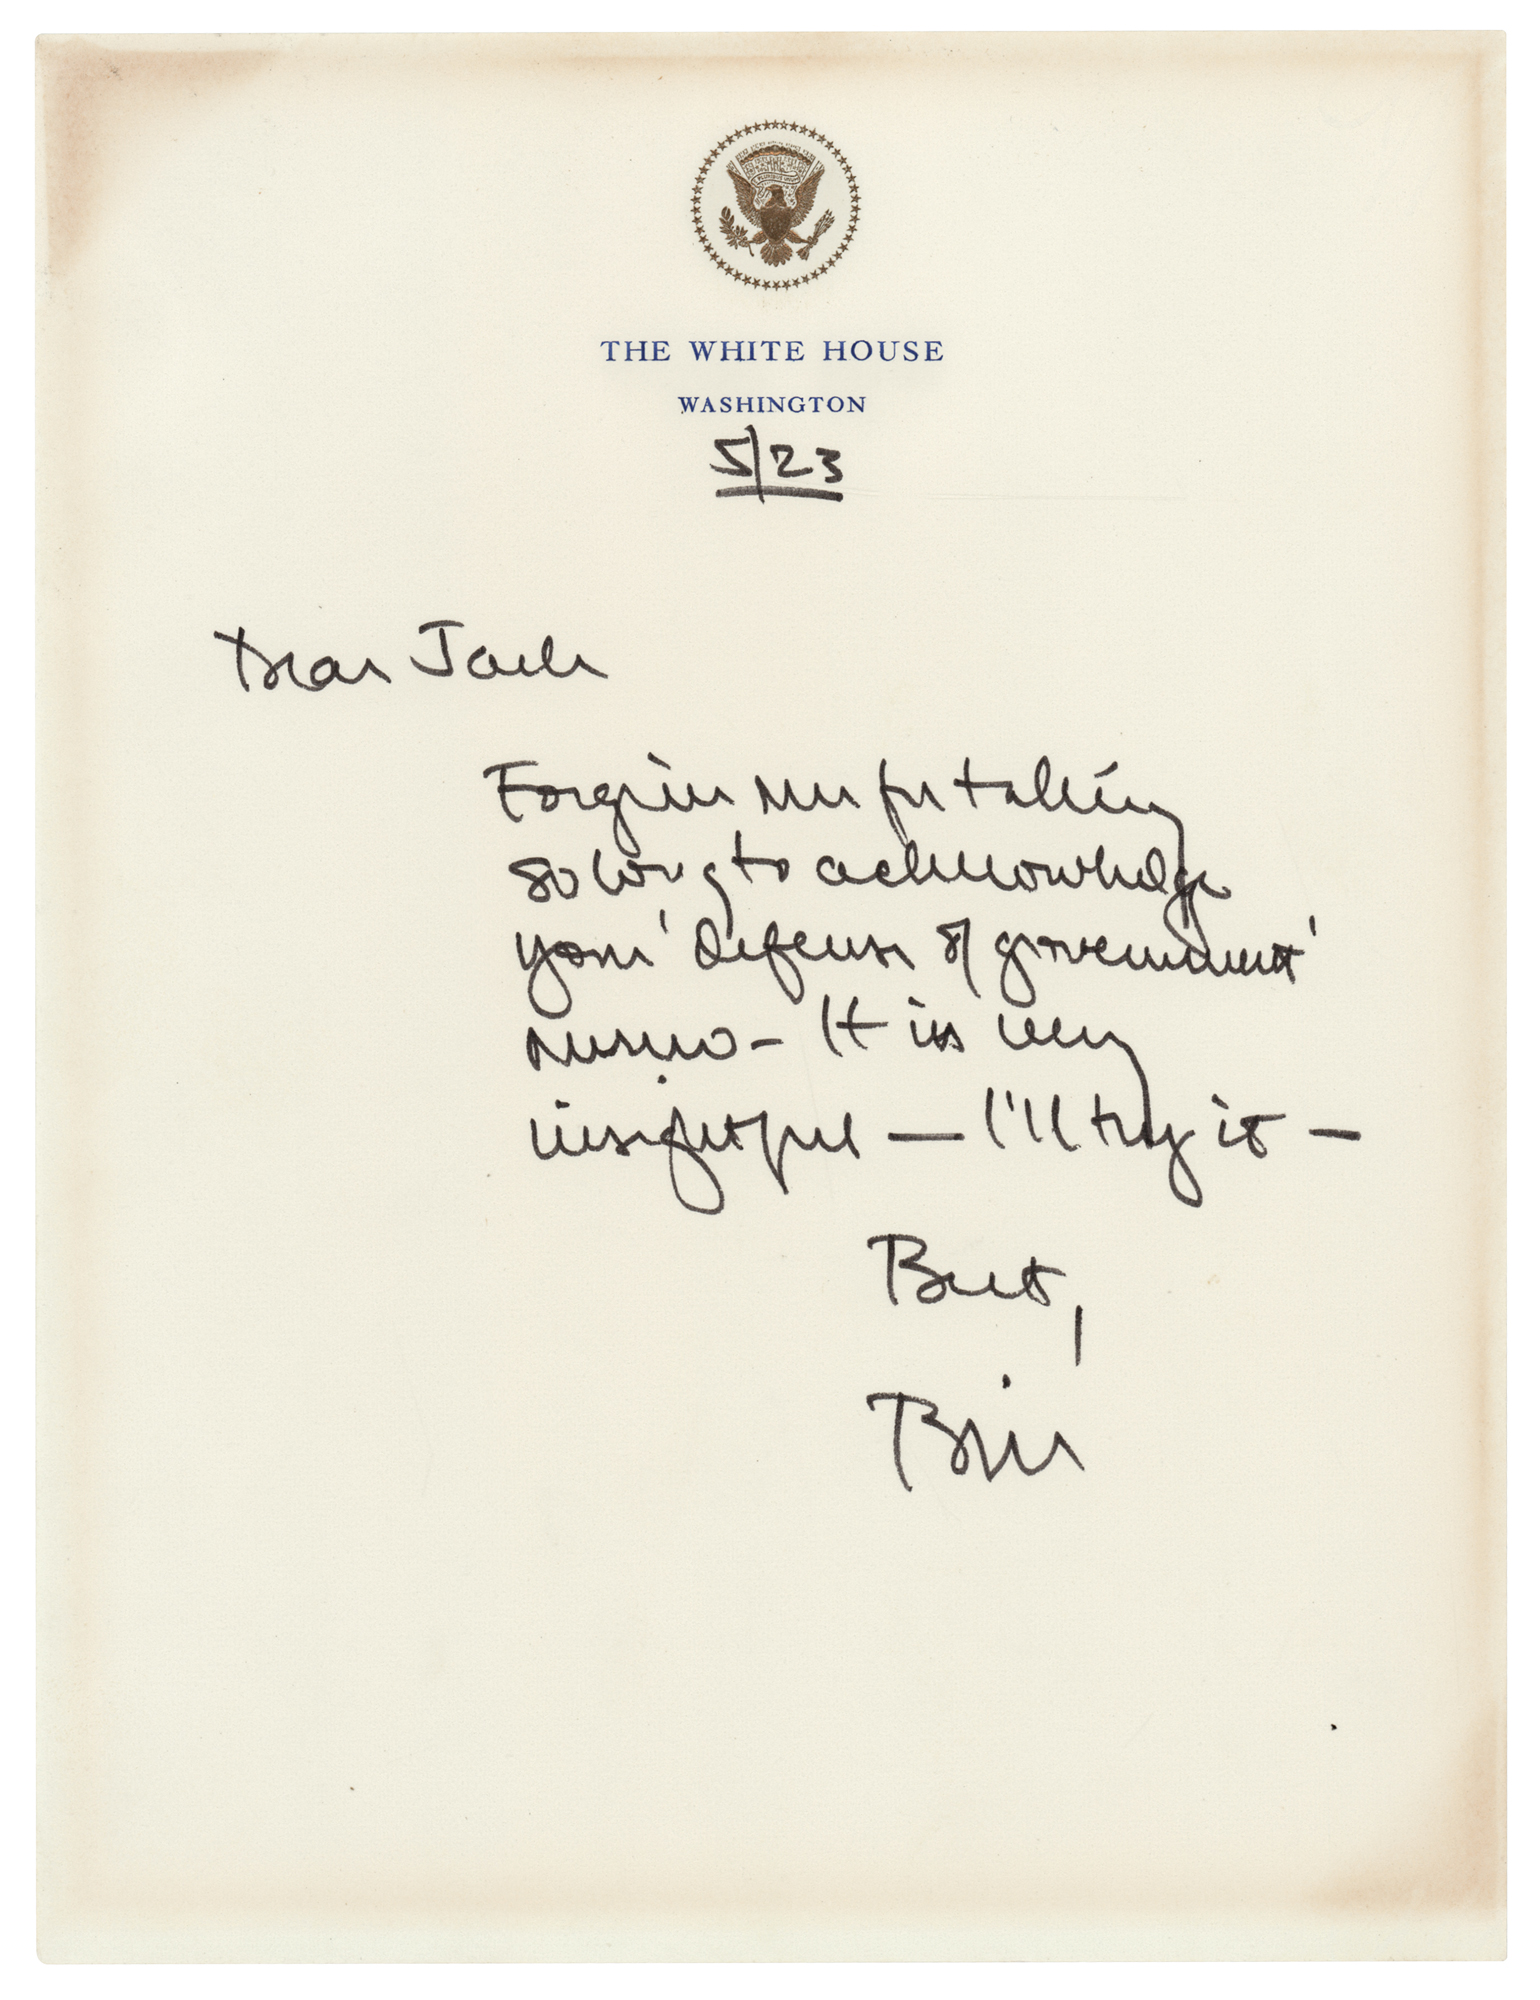 THE WHITE HOUSE
WASHINGTON
5/23
Dear Jack
Forgive me for taking
so long to acknowledge
your 'defense of government'
memo - It is very
insightful — I'll try it —
Best,
Bill